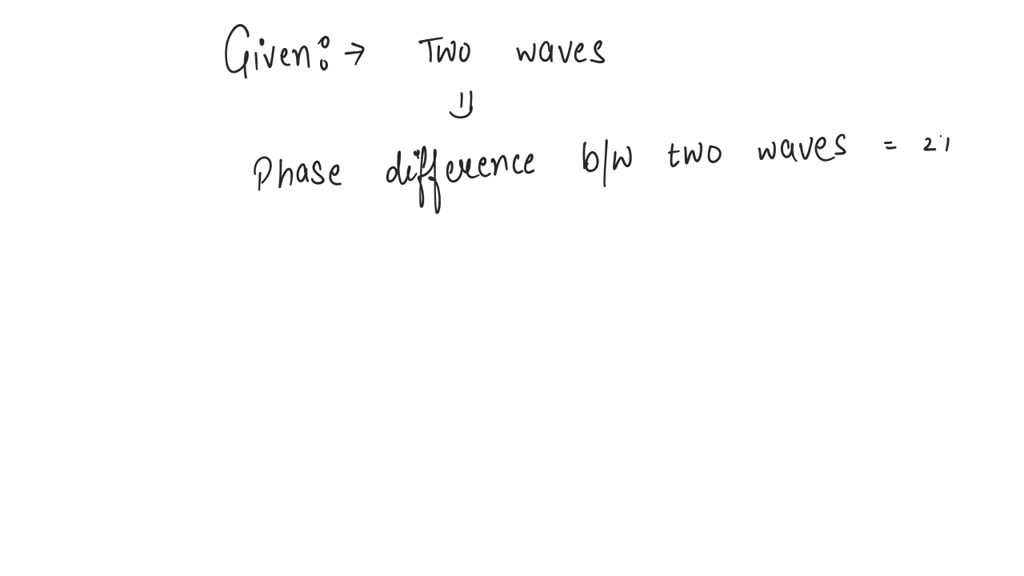 Given: → Two waves
⇓
Phase difference b/w two waves =